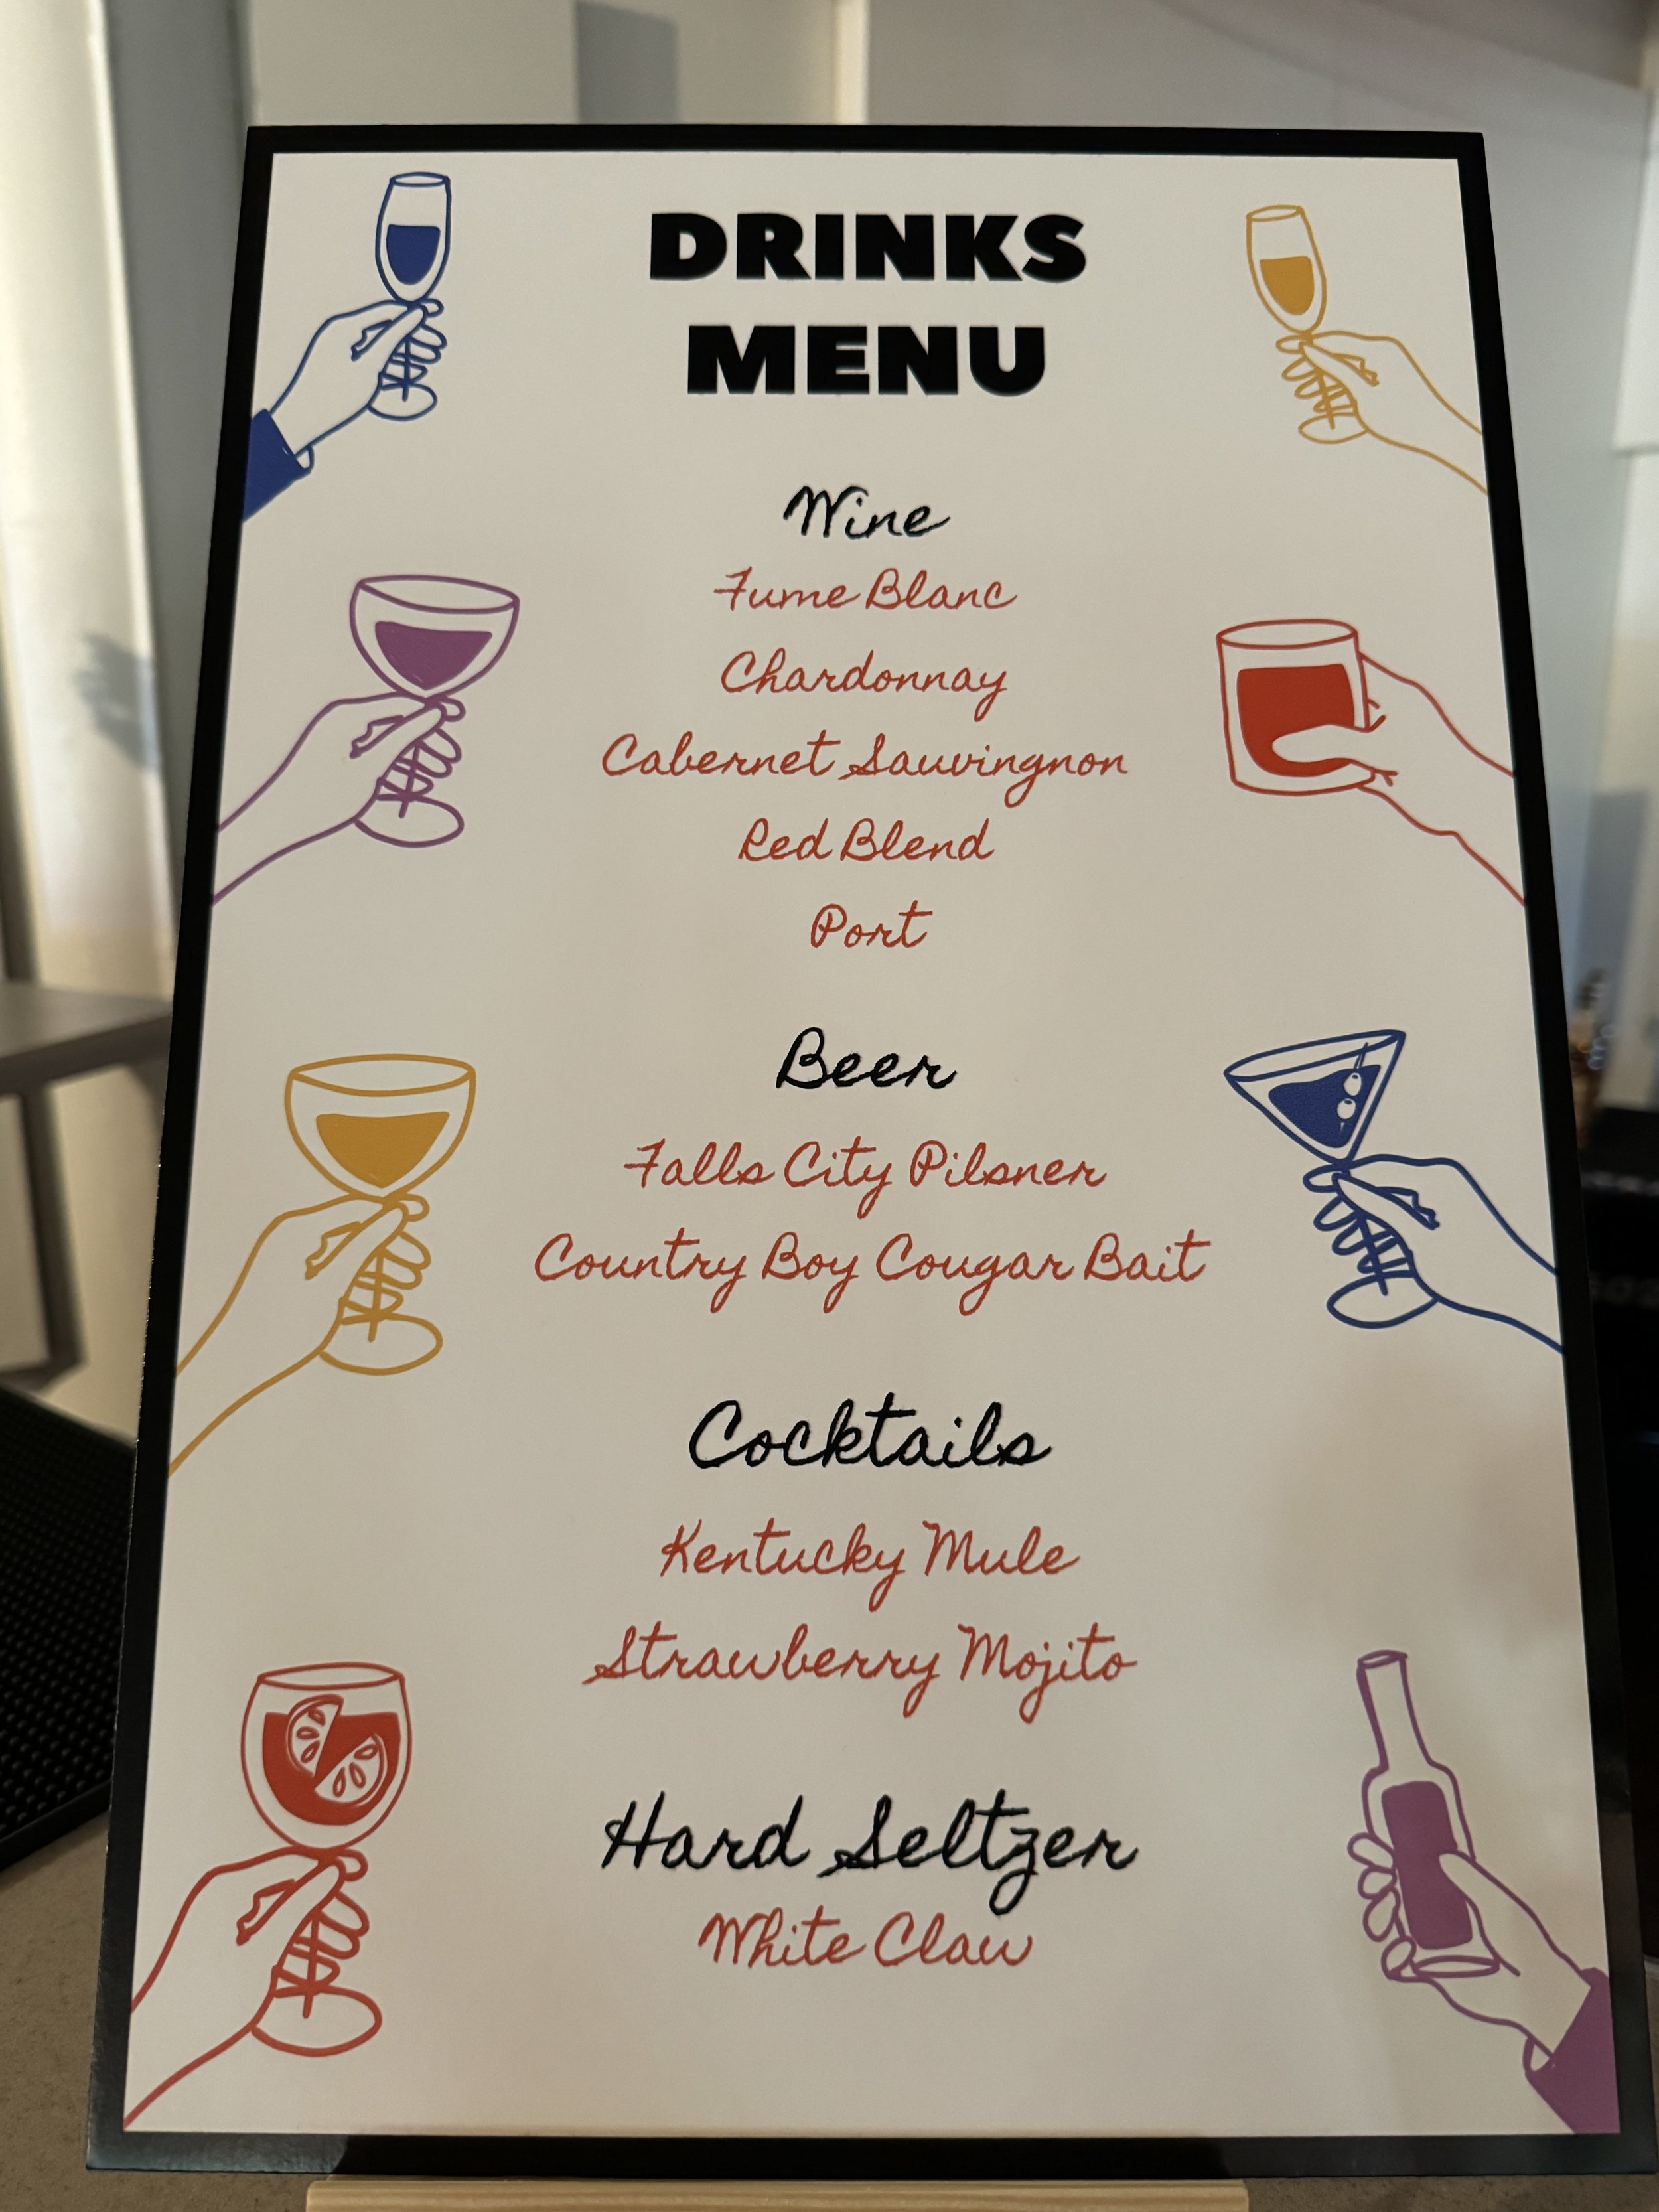 DRINKS
MENU
Wine
Fume Blanc
Chardonnay
Cabernet Sauvingnon
Red Blend
Port
Beer
Falls City Pilsner
Country Boy Cougar Bait
Cocktails
Kentucky Mule
Strawberry Mojito
Hard Seltzer
White Claw